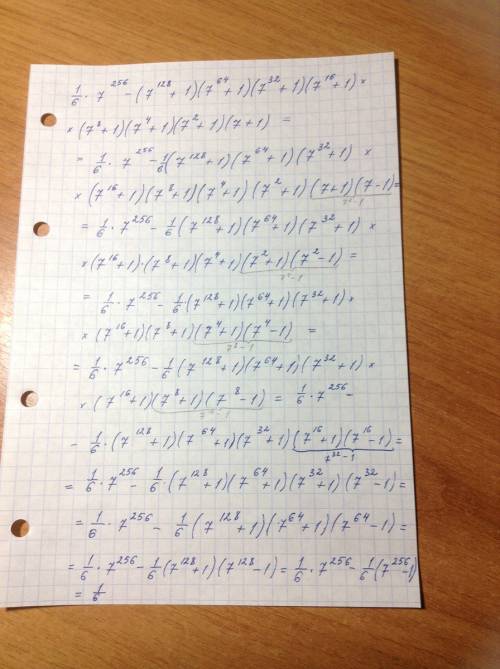 1/6 · 7^256 − (7^128 + 1)(7^64 + 1)(7^32 + 1)(7^16 + 1) ×
× (7^8 + 1)(7^4 + 1)(7^2 + 1)(7 + 1) =
= 1/6 · 7^256 − 1/6 (7^128 + 1)(7^64 + 1)(7^32 + 1) ×
× (7^16 + 1)(7^8 + 1)(7^4 + 1)(7^2 + 1)(7 + 1)(7 − 1) =
7^2 − 1
= 1/6 · 7^256 − 1/6 (7^128 + 1)(7^64 + 1)(7^32 + 1) ×
× (7^16 + 1) · (7^8 + 1)(7^4 + 1)(7^2 + 1)(7^2 − 1) =
= 1/6 · 7^256 − 1/6 (7^128 + 1)(7^64 + 1)(7^32 + 1) ×
× (7^16 + 1)(7^8 + 1)(7^4 + 1)(7^4 − 1) =
7^8 − 1
= 1/6 · 7^256 − 1/6 (7^128 + 1)(7^64 + 1)(7^32 + 1) ×
× (7^16 + 1)(7^8 + 1)(7^8 − 1) = 1/6 · 7^256 −
7^16 − 1
− 1/6 · (7^128 + 1)(7^64 + 1)(7^32 + 1)(7^16 + 1)(7^16 − 1) =
7^32 − 1
= 1/6 · 7^256 − 1/6 · (7^128 + 1)(7^64 + 1)(7^32 + 1)(7^32 − 1) =
= 1/6 · 7^256 − 1/6 (7^128 + 1)(7^64 + 1)(7^64 − 1) =
= 1/6 · 7^256 − 1/6 (7^128 + 1)(7^128 − 1) = 1/6 · 7^256 − 1/6 (7^256 − 1)
= 1/6